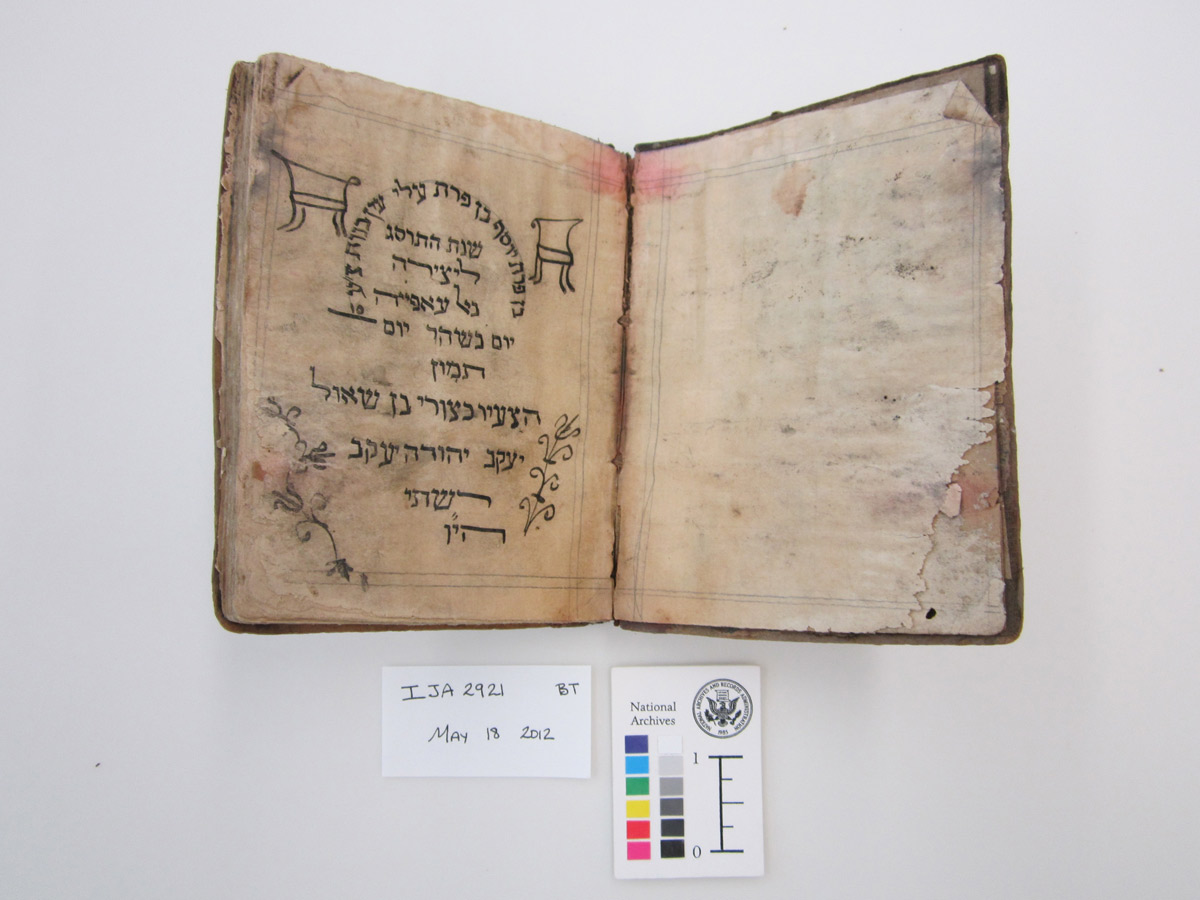 בן פרת יוסף בן פרת עילי עין בנות צעדה
שנת התרסג
ליצירה
יום בשהר יום
תמוז
הצעיר בצורי בן שאול
יעקב יהודה יעקב
השתי
היו
IJA 2921 BT
MAY 18 2012
National
Archives
NATIONAL ARCHIVES AND RECORDS ADMINISTRATION
1985
1
0